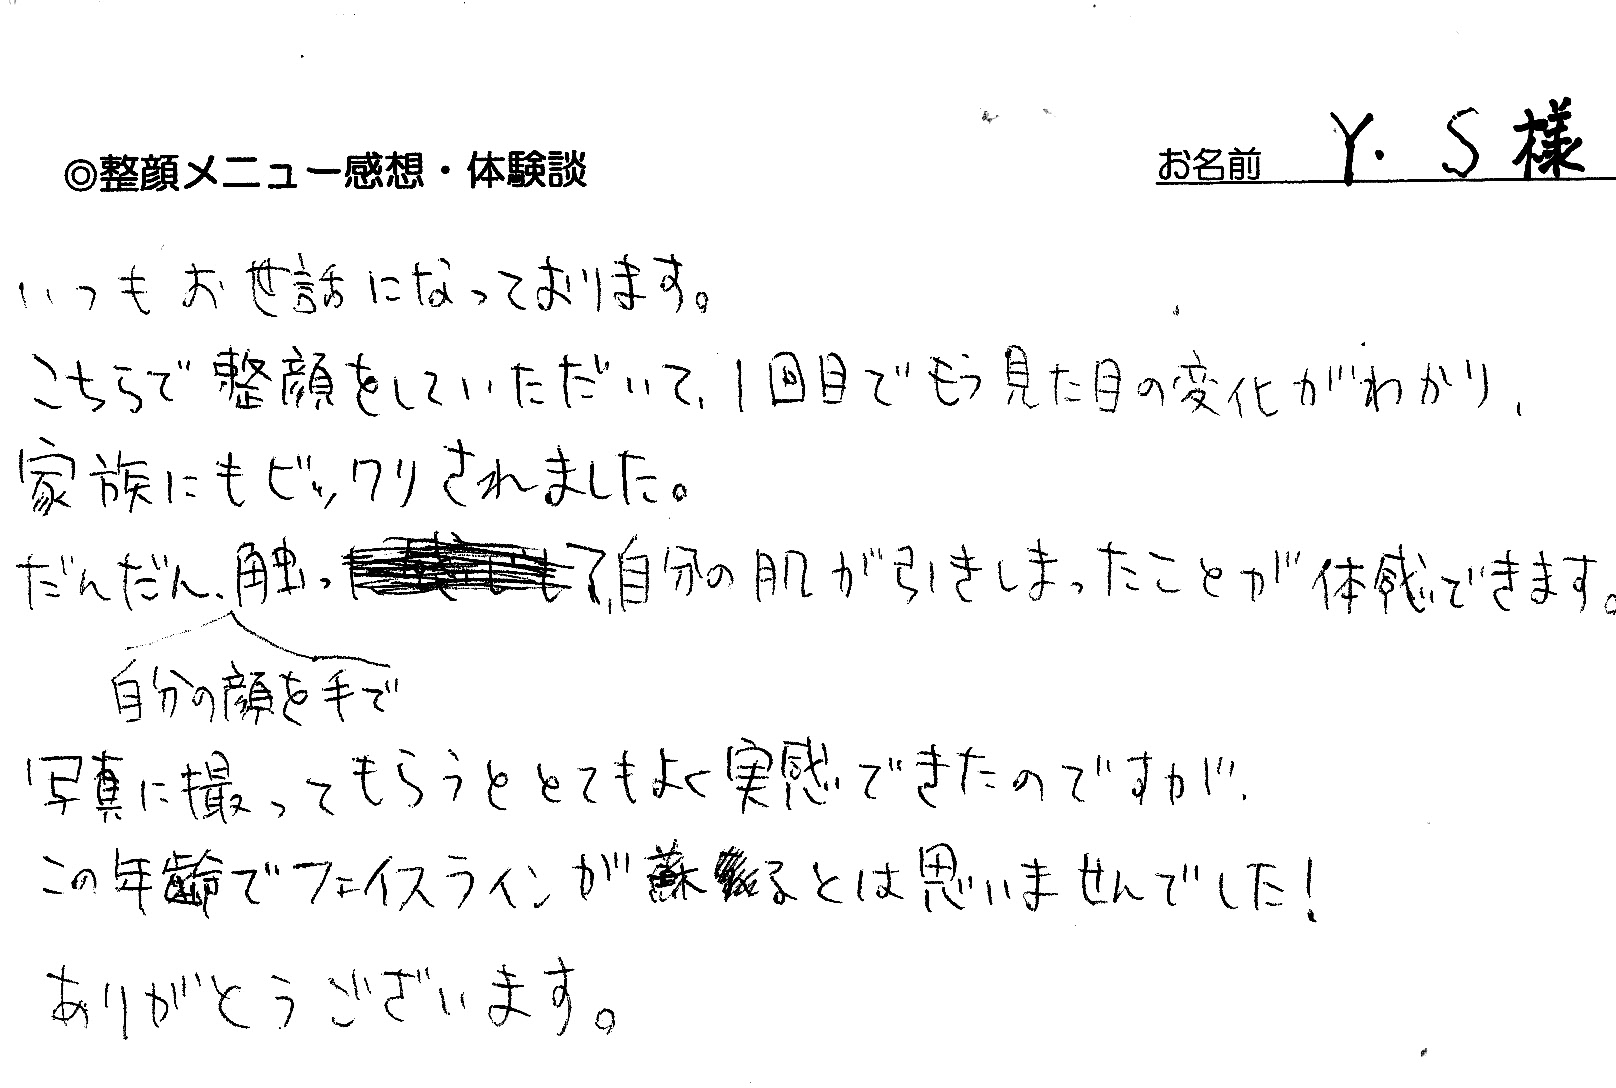 ◎整顔メニュー感想・体験談
お名前 Y.S様
いつもお世話になっております。
こちらで整顔をしていただいて、1回目でもう見た目の変化がわかり、
家族にもビックリされました。
だんだん、触って、自分の肌が引きしまったことが体感できます。
自分の顔を手で
写真に撮ってもらうととてもよく実感できたのですが、
この年齢でフェイスラインが蘇るとは思いませんでした!
ありがとうございます。